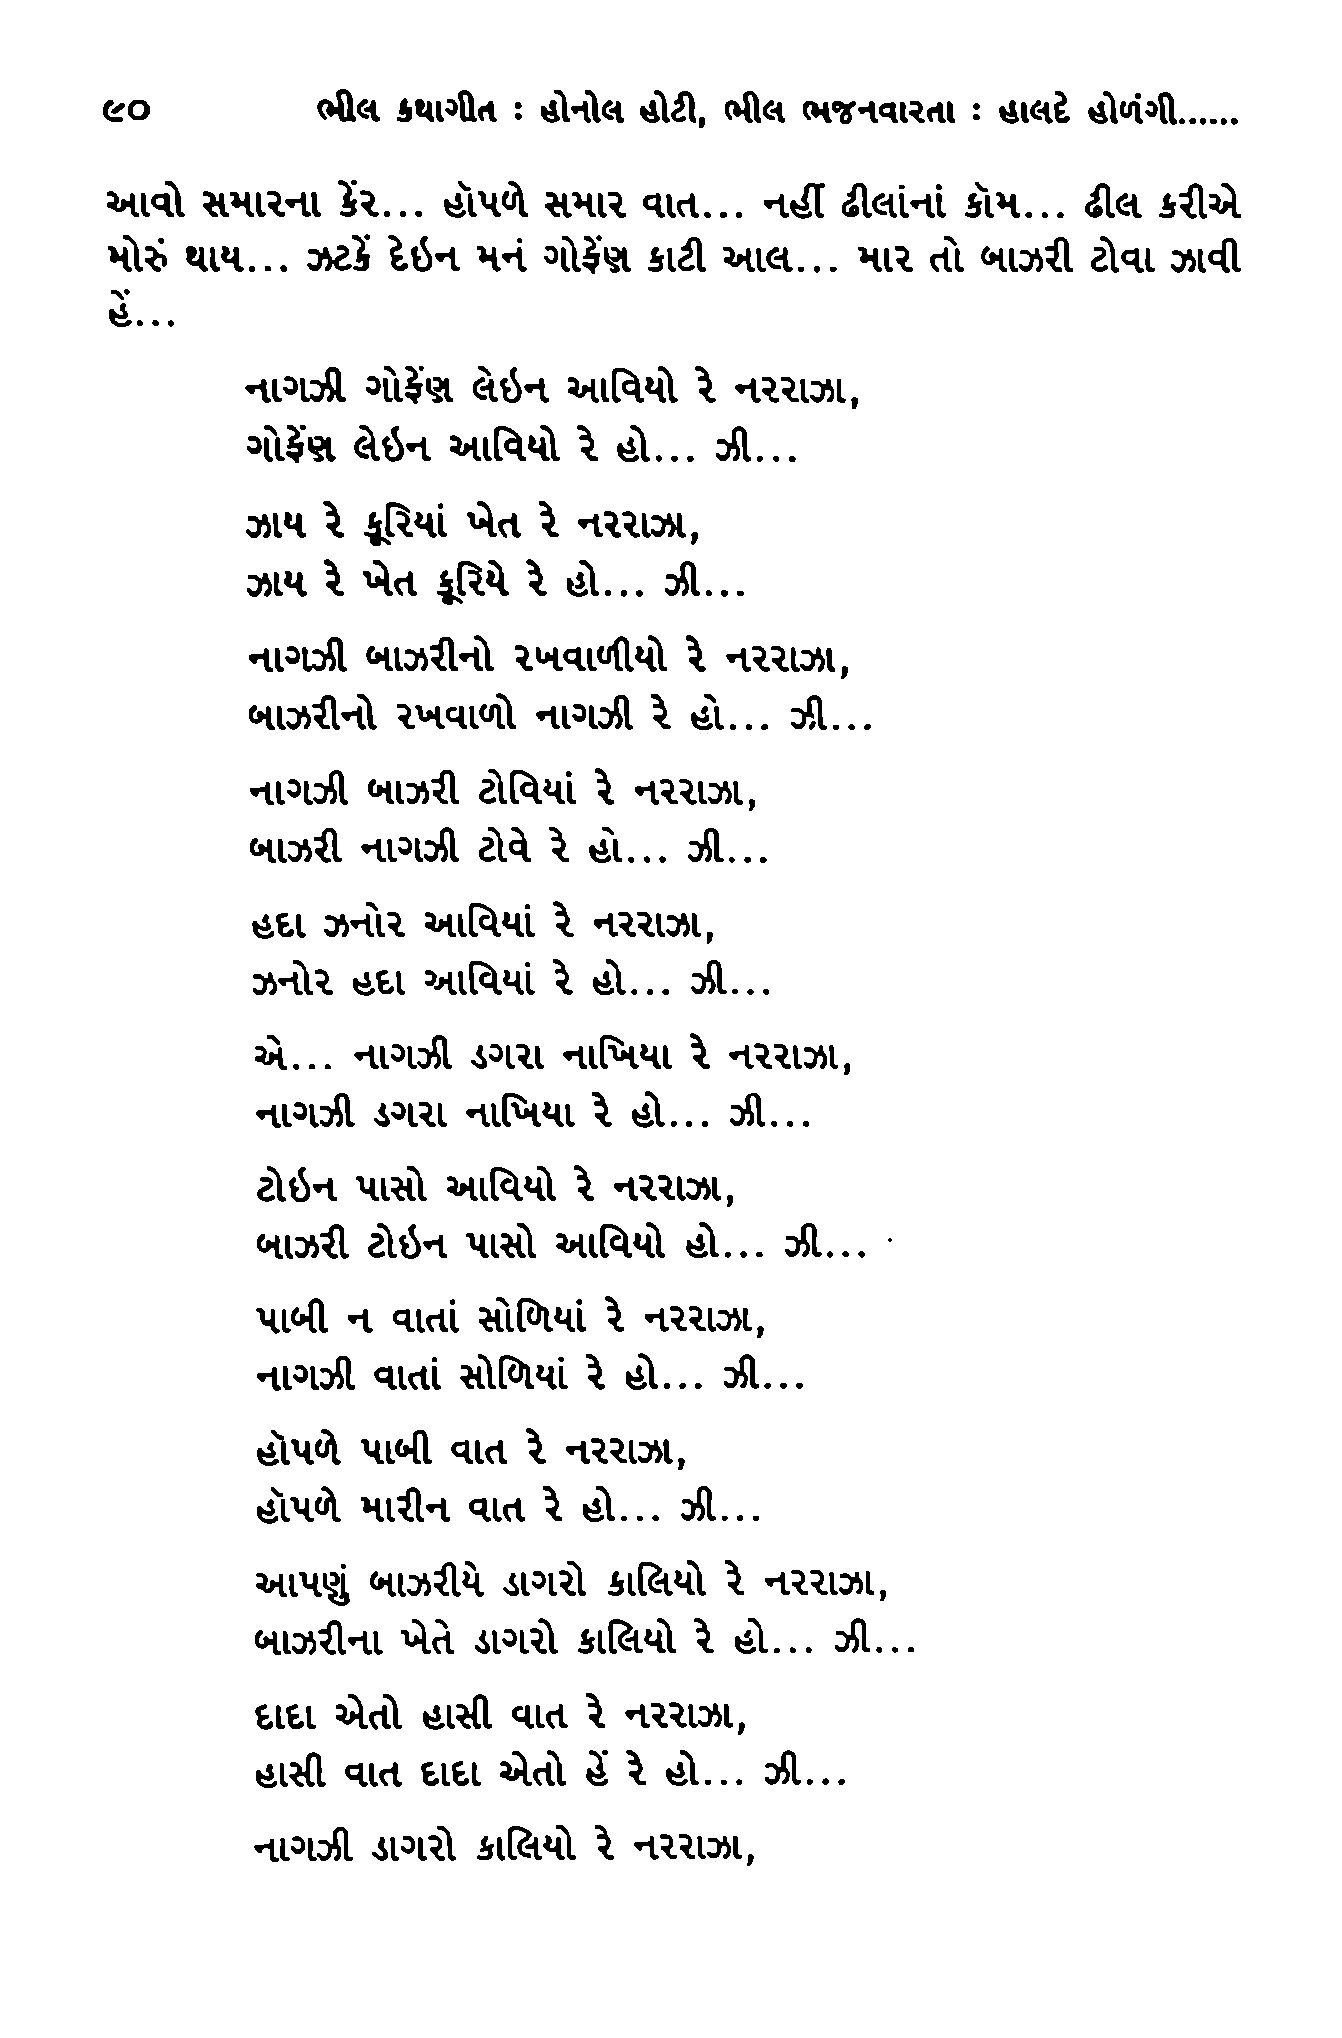 ૯૦ ભીલ કથાગીત : હોનોલ હોટી, ભીલ ભજનવારતા : હાલદે હોળંગી......
આવો સમારના કેંર... હૉપળે સમાર વાત... નહીં ઢીલાંનાં કૉમ... ઢીલ કરીએ
મોરું થાય... ઝટકેં દેઇન મનં ગોફેંણ કાટી આલ... માર તો બાઝરી ટોવા ઝાવી
હેં...
નાગઝી ગોફેંણ લેઇન આવિયો રે નરરાઝા,
ગોફેંણ લેઇન આવિયો રે હો... ઝી...
ઝાય રે કૂરિયાં ખેત રે નરરાઝા,
ઝાય રે ખેત કૂરિયે રે હો... ઝી...
નાગઝી બાઝરીનો રખવાળીયો રે નરરાઝા,
બાઝરીનો રખવાળો નાગઝી રે હો... ઝી...
નાગઝી બાઝરી ટોવિયાં રે નરરાઝા,
બાઝરી નાગઝી ટોવે રે હો... ઝી...
હદા ઝનોર આવિયાં રે નરરાઝા,
ઝનોર હદા આવિયાં રે હો... ઝી...
એ... નાગઝી ડગરા નાખિયા રે નરરાઝા,
નાગઝી ડગરા નાખિયા રે હો... ઝી...
ટોઇન પાસો આવિયો રે નરરાઝા,
બાઝરી ટોઇન પાસો આવિયો હો... ઝી...
પાબી ન વાતાં સોળિયાં રે નરરાઝા,
નાગઝી વાતાં સોળિયાં રે હો... ઝી...
હૉપળે પાબી વાત રે નરરાઝા,
હૉપળે મારીન વાત રે હો... ઝી...
આપણું બાઝરીયે ડાગરો કાલિયો રે નરરાઝા,
બાઝરીના ખેતે ડાગરો કાલિયો રે હો... ઝી...
દાદા એતો હાસી વાત રે નરરાઝા,
હાસી વાત દાદા એતો હેં રે હો... ઝી...
નાગઝી ડાગરો કાલિયો રે નરરાઝા,